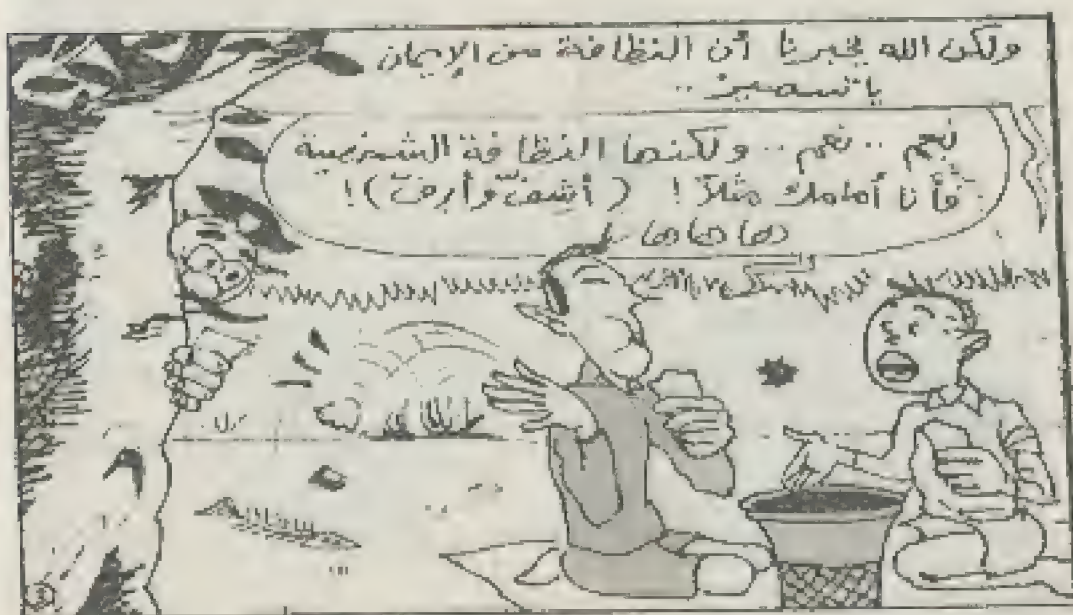 ولكن الله يخبرنا أن النظافة من الإيمان
يا سمير ..
نعم .. نعم .. ولكنها النظافة الشخصية
فأنا أمامك مثلاً ! ( أشفّ وأرفّ ) !
ها ها ها ..